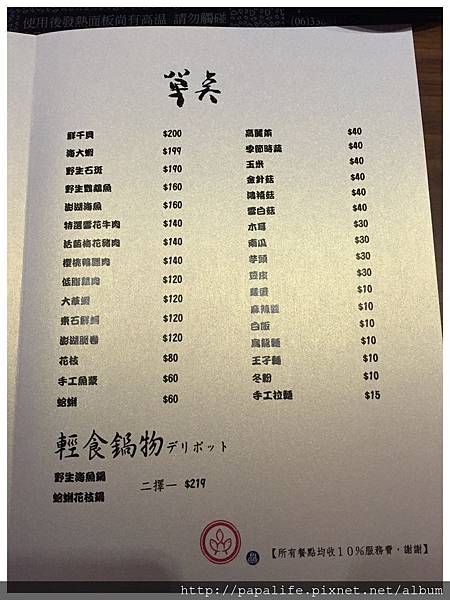 使用後發熱面板尚有高温 請勿觸碰
(06)33
單点
鮮干貝 $200
海大蝦 $199
野生石斑 $190
野生鸚鵡魚 $160
澎湖海魚 $160
特選雪花牛肉 $140
活菌梅花豬肉 $140
櫻桃鴨腿肉 $140
低脂雞肉 $120
大草蝦 $120
東石鮮蚵 $120
澎湖脆卷 $120
花枝 $80
手工魚漿 $60
蛤蜊 $60
高麗菜 $40
季節時蔬 $40
玉米 $40
金針菇 $40
鴻禧菇 $40
雪白菇 $40
木耳 $30
南瓜 $30
芋頭 $30
豆皮 $30
雞蛋 $10
麻辣醬 $10
白飯 $10
烏龍麵 $10
王子麵 $10
冬粉 $10
手工拉麵 $15
輕食鍋物 デリポット
野生海魚鍋
蛤蜊花枝鍋
二擇一 $219
【所有餐點均收10%服務費，謝謝】
http://papalife.pixnet.net/album